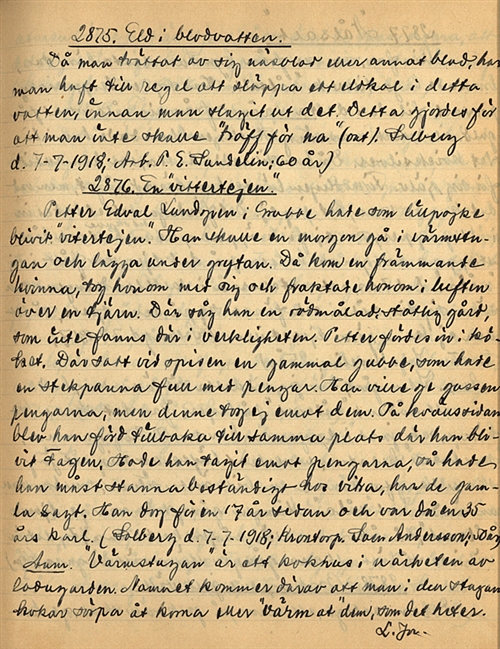 2875. Eld i blodvatten.
Då man tvättat av sig näsblod eller annat blod, har
man haft till regel att släppa ett eldskol i detta
vatten, innan man slagit ut det. Detta gjordes för
att man inte skulle "träff för na" (ont). Solberg
d. 7-7-1918; Arb. P. E. Sundelin; 60 år.)
2876. En "vittertejen."
Petter Edval Lundgren i Grubbe hade som litepojke
blivit "vitertejen". Han skulle en morgon gå i värmstu-
gan och lägga under grytan. Då kom en främmande
kvinna, tog honom med sig och fraktade honom i luften
över en tjärn. Där såg han en rödmålad, ståtlig gård,
som inte fanns där i verkligheten. Petter fördes in i kö-
ket. Där satt vid spisen en gammal gubbe, som hade
en stekpanna full med pengar. Han ville ge gossen
pengarna, men denne tog ej emot dem. På kvällssidan
blev han förd tillbaka till samma plats där han bli-
vit tagen. Hade han tagit emot pengarna, så hade
han måst stanna beständigt hos vitra, har de gam-
la sagt. Han dog för en 17 år sedan och var då en 35
års karl. (Solberg d. 7-7-1918; Krontorp. Sven Andersson;
Anm. "Värmstugan" är ett kokhus i närheten av
ladugården. Namnet kommer därav att man i den stugan
kokar sörpa åt korna eller "värm at" dem, som det heter.
L. Jon.